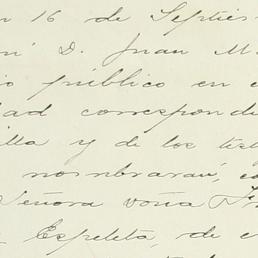 n 16 de Septie
n' D. Juan M
io público en e
dad correspond
illa y de los tes
nombrarán, co
Señora doña Fr
Espeleta, de e